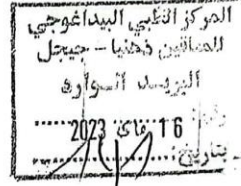 المركز الطبي البيداغوجي
للمعاقين ذهنيا – جيجل
البريد الوارد
رقم:
16 ماي 2023
بتاريخ: